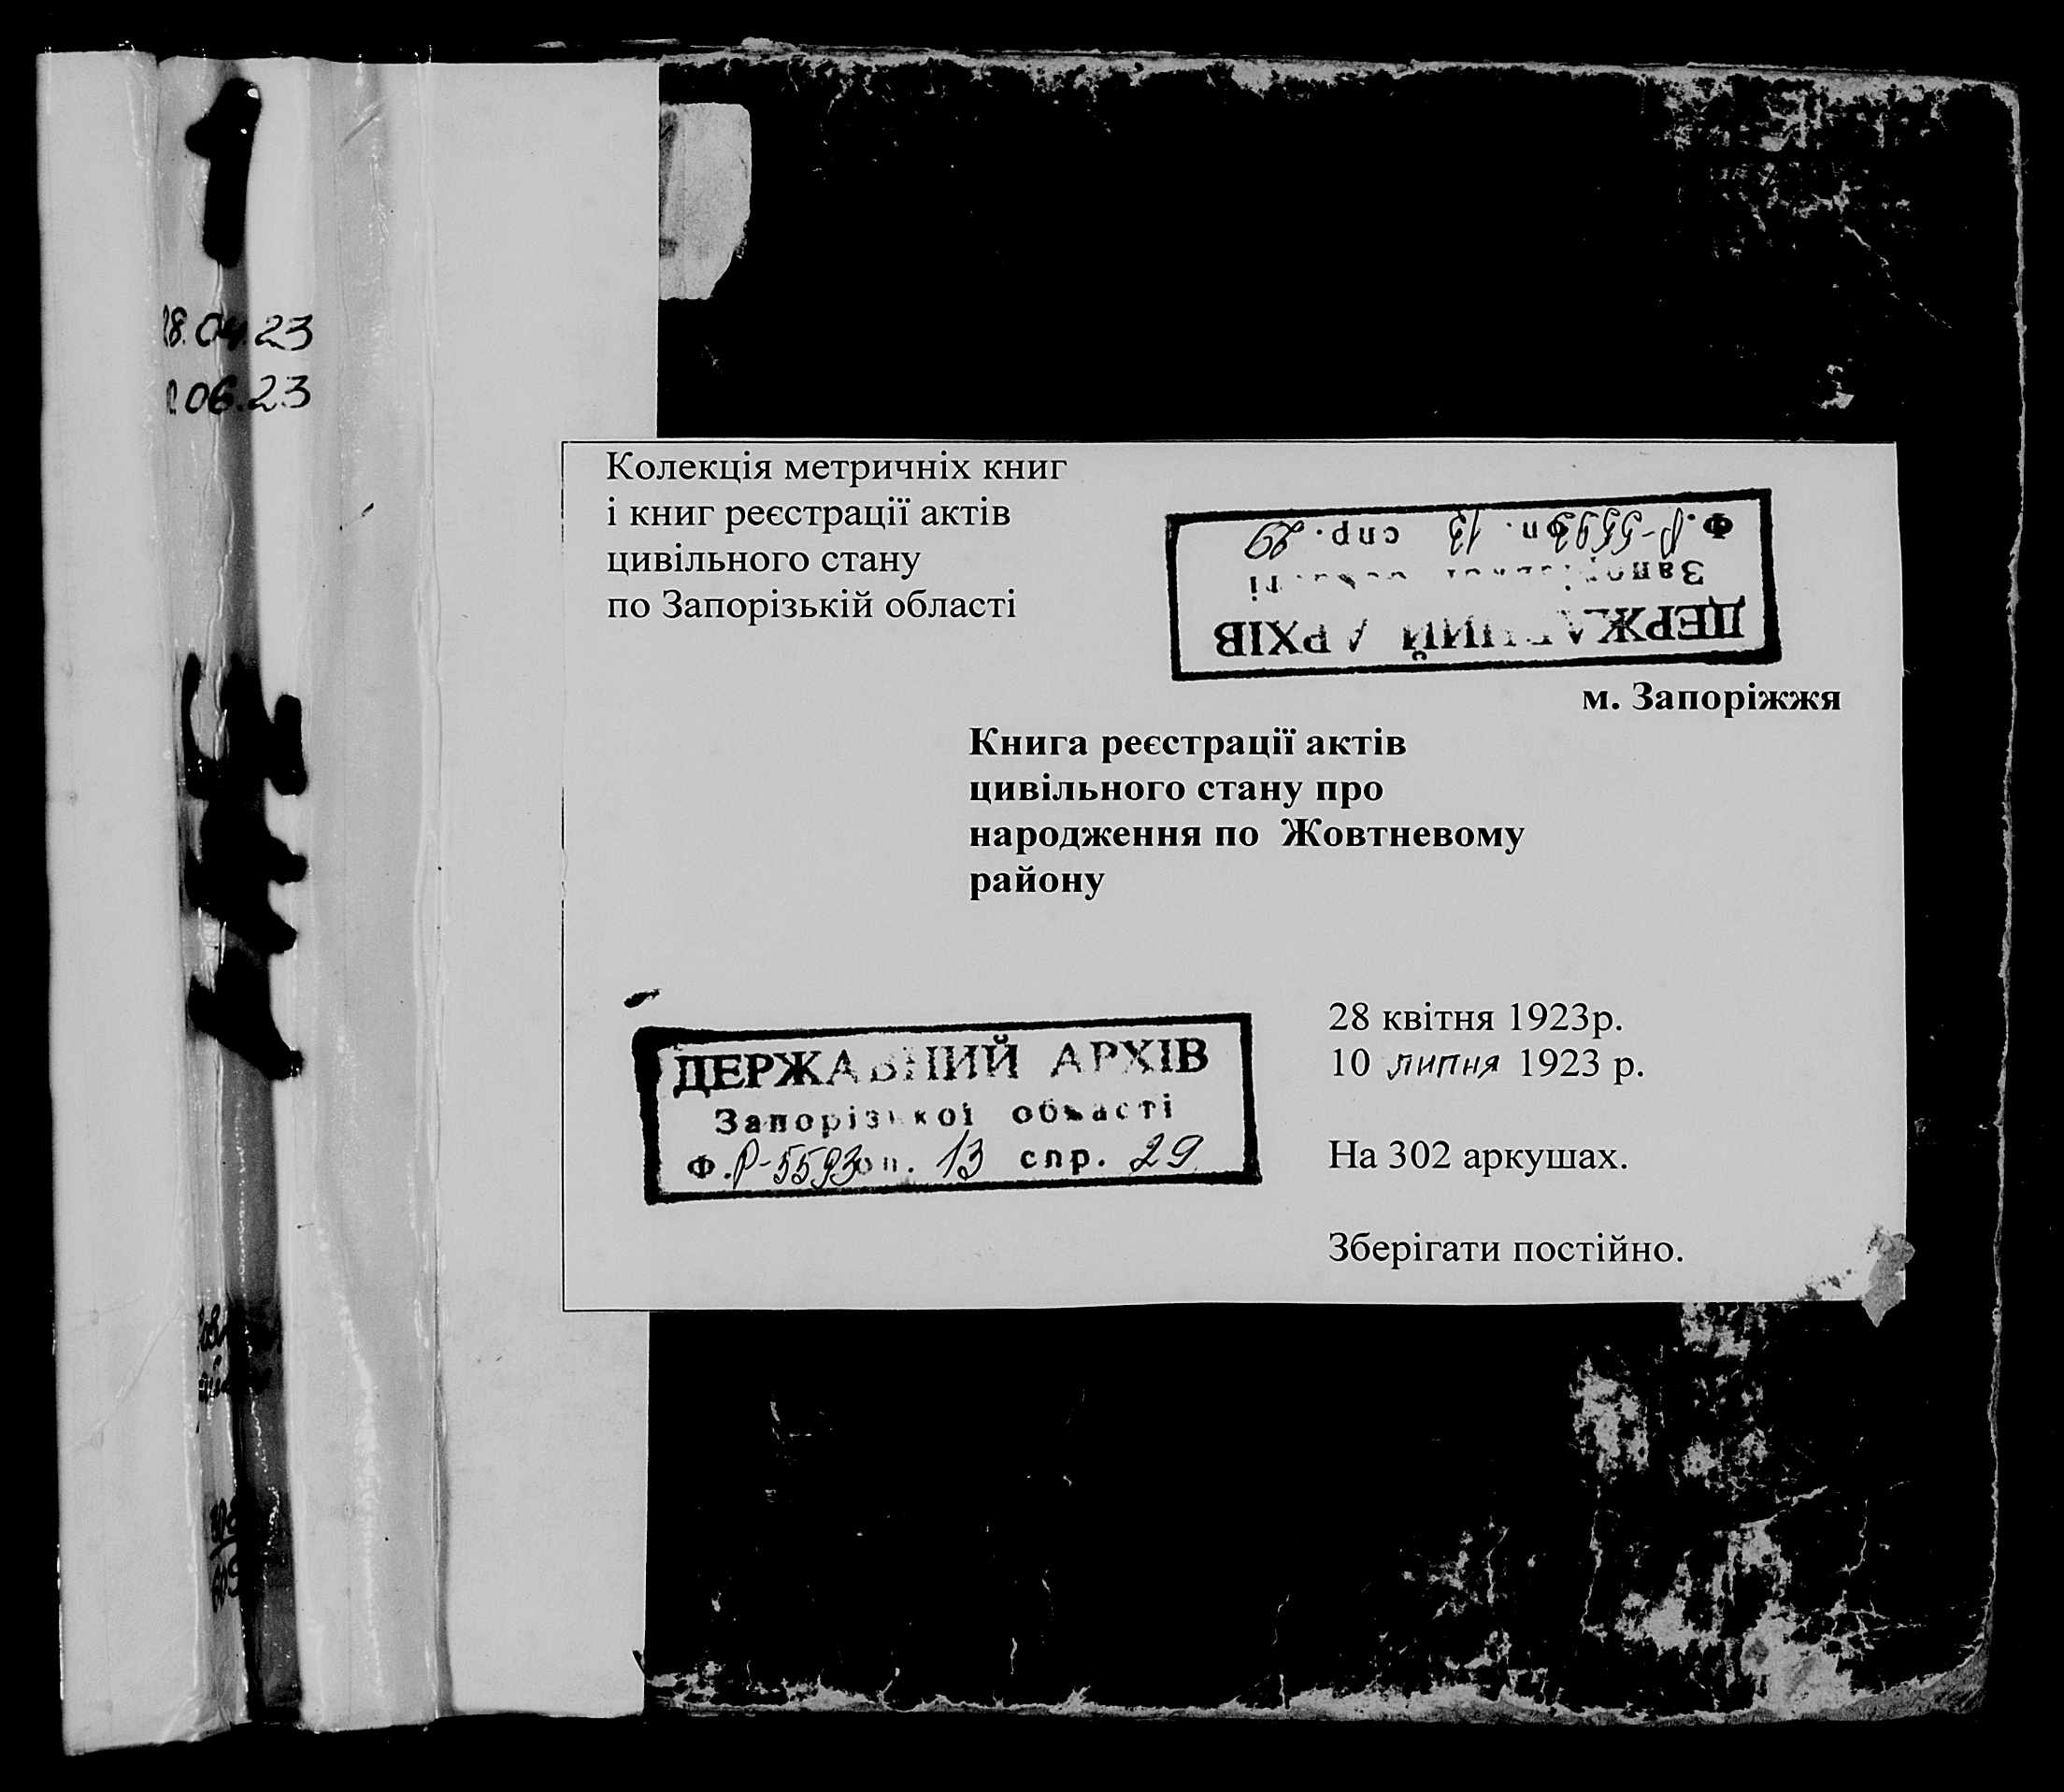 1
28.04.23
06.23
Колекція метричніх книг
і книг реєстрації актів
цивільного стану
по Запорізькій області
ДЕРЖАВНИЙ АРХІВ
Запорізької області
Ф. Р-5593 оп. 13 спр. 29
м. Запоріжжя
Книга реєстрації актів
цивільного стану про
народження по Жовтневому
району
28 квітня 1923р.
10 липня 1923 р.
ДЕРЖАВНИЙ АРХІВ
Запорізької області
Ф. Р-5593 оп. 13 спр. 29
На 302 аркушах.
Зберігати постійно.